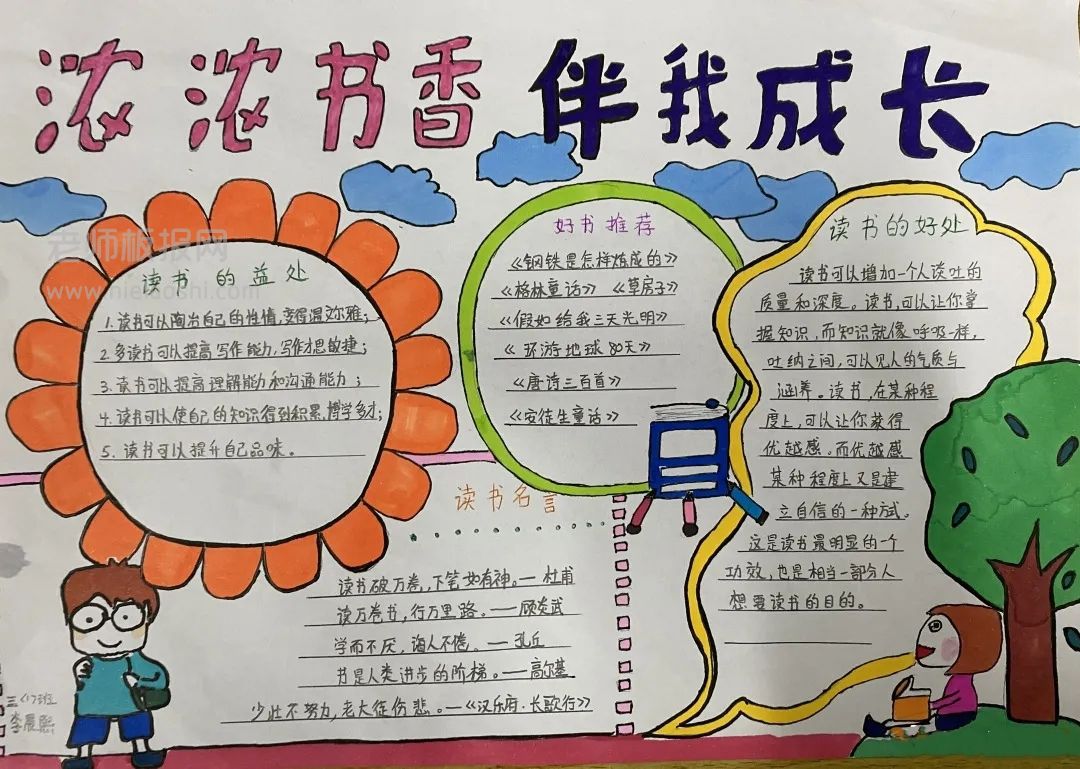 浓浓书香 伴我成长
老师板报网
读书的益处
1.读书可以陶冶自己的性情,变得温文尔雅;
2.多读书可以提高写作能力,写作才思敏捷;
3.读书可以提高理解能力和沟通能力;
4.读书可以使自己的知识得到积累,博学多才;
5.读书可以提升自己品味。
好书推荐
《钢铁是怎样炼成的》
《格林童话》《草房子》
《假如给我三天光明》
《环游地球80天》
《唐诗三百首》
《安徒生童话》
读书的好处
读书可以增加一个人谈吐的
质量和深度。读书,可以让你掌
握知识,而知识就像呼吸一样,
吐纳之间,可以见人的气质与
涵养。读书,在某种程
度上,可以让你获得
优越感。而优越感
某种程度上又是建
立自信的一种方式。
这是读书最明显的一个
功效,也是相当一部分人
想要读书的目的。
读书名言
读书破万卷,下笔如有神。—杜甫
读万卷书,行万里路。——顾炎武
学而不厌,诲人不倦。——孔丘
书是人类进步的阶梯。——高尔基
少壮不努力,老大徒伤悲。—《汉乐府·长歌行》
三〈1〉班